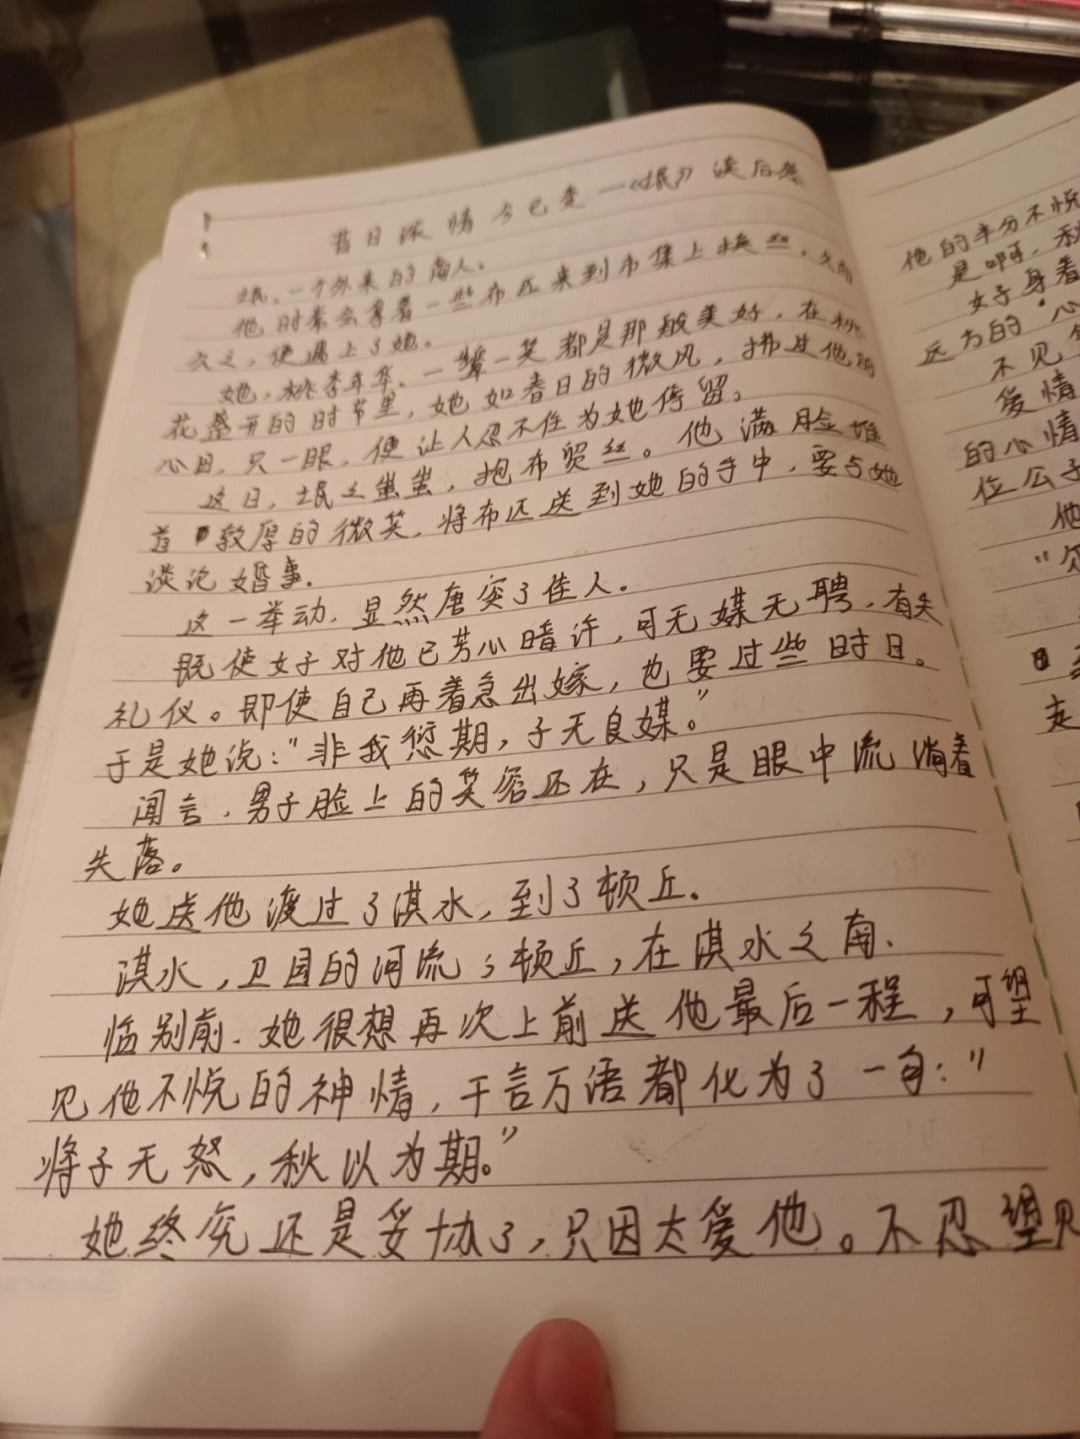 昔日浓情今已变——《氓》读后感
氓,一个外来的商人。
他时常会拿着一些布匹来到市集上换丝,久而
久之,便遇上了她。
她,桃李年华,一颦一笑都是那般美好,在桃
花盛开的时节里,她如春日的微风,拂过他的
心田,只一眼,便让人忍不住为她停留。
这日,氓之蚩蚩,抱布贸丝。他满脸堆
着敦厚的微笑,将布匹送到她的手中,要与她
谈论婚事.
这一举动,显然唐突了佳人.
既使女子对他已芳心暗许,可无媒无聘,有失
礼仪。即使自己再着急出嫁,也要过些时日。
于是她说:"非我愆期,子无良媒。"
闻言,男子脸上的笑容还在,只是眼中流淌着
失落。
她送他渡过了淇水,到了顿丘.
淇水,卫国的河流;顿丘,在淇水之南.
临别前.她很想再次上前送他最后一程,可望
见他不悦的神情,千言万语都化为了一句:"
将子无怒,秋以为期。"
她终究还是妥协了,只因太爱他。不忍望见
他的半分不悦
是啊,秋
女子身着
远方的"心
不见
爱情
的心情
位公子
他
"尔
走